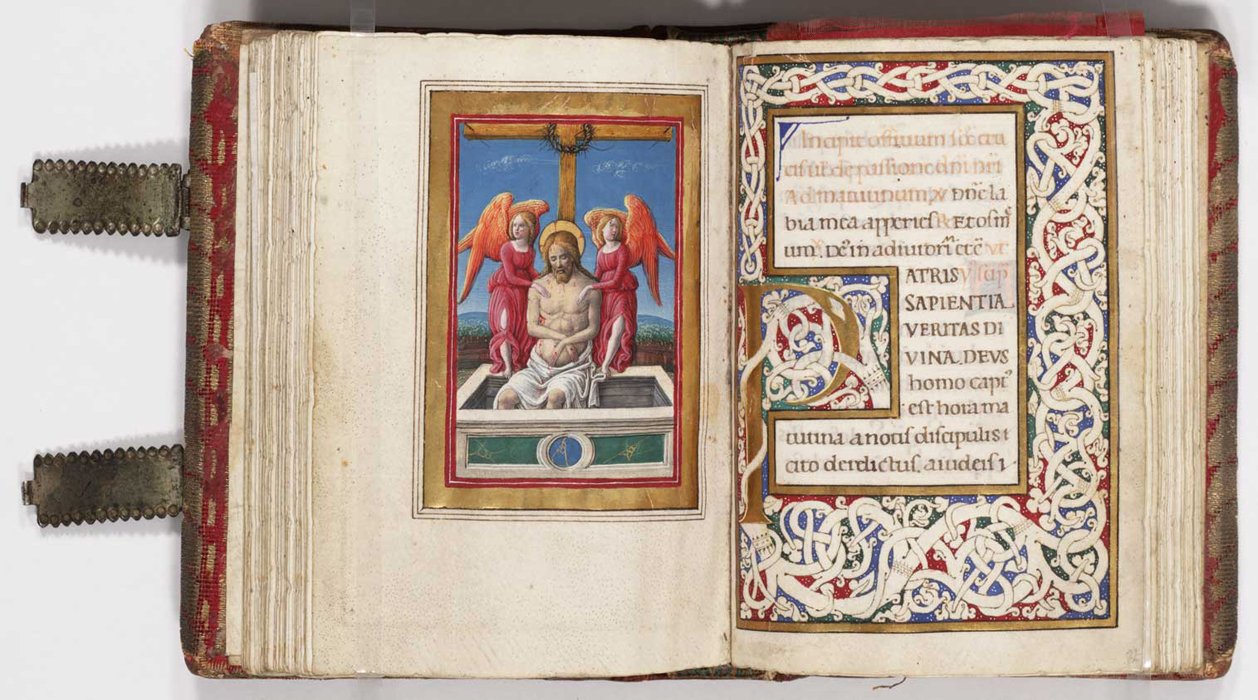 Incipit offitium sc̄e cru
cis siue de passione dn̄i nr̄i
Ad matutinum. V Dn̄e la
bia mea apperies. Et os m̄
um. Deus in adiutoriū etc̄
PATRIS
SAPIENTIA
VERITAS DI
VINA. DEVS
homo capt⁹
est hora ma
tutina a notis discipulis
cito derelictus. a iudeis